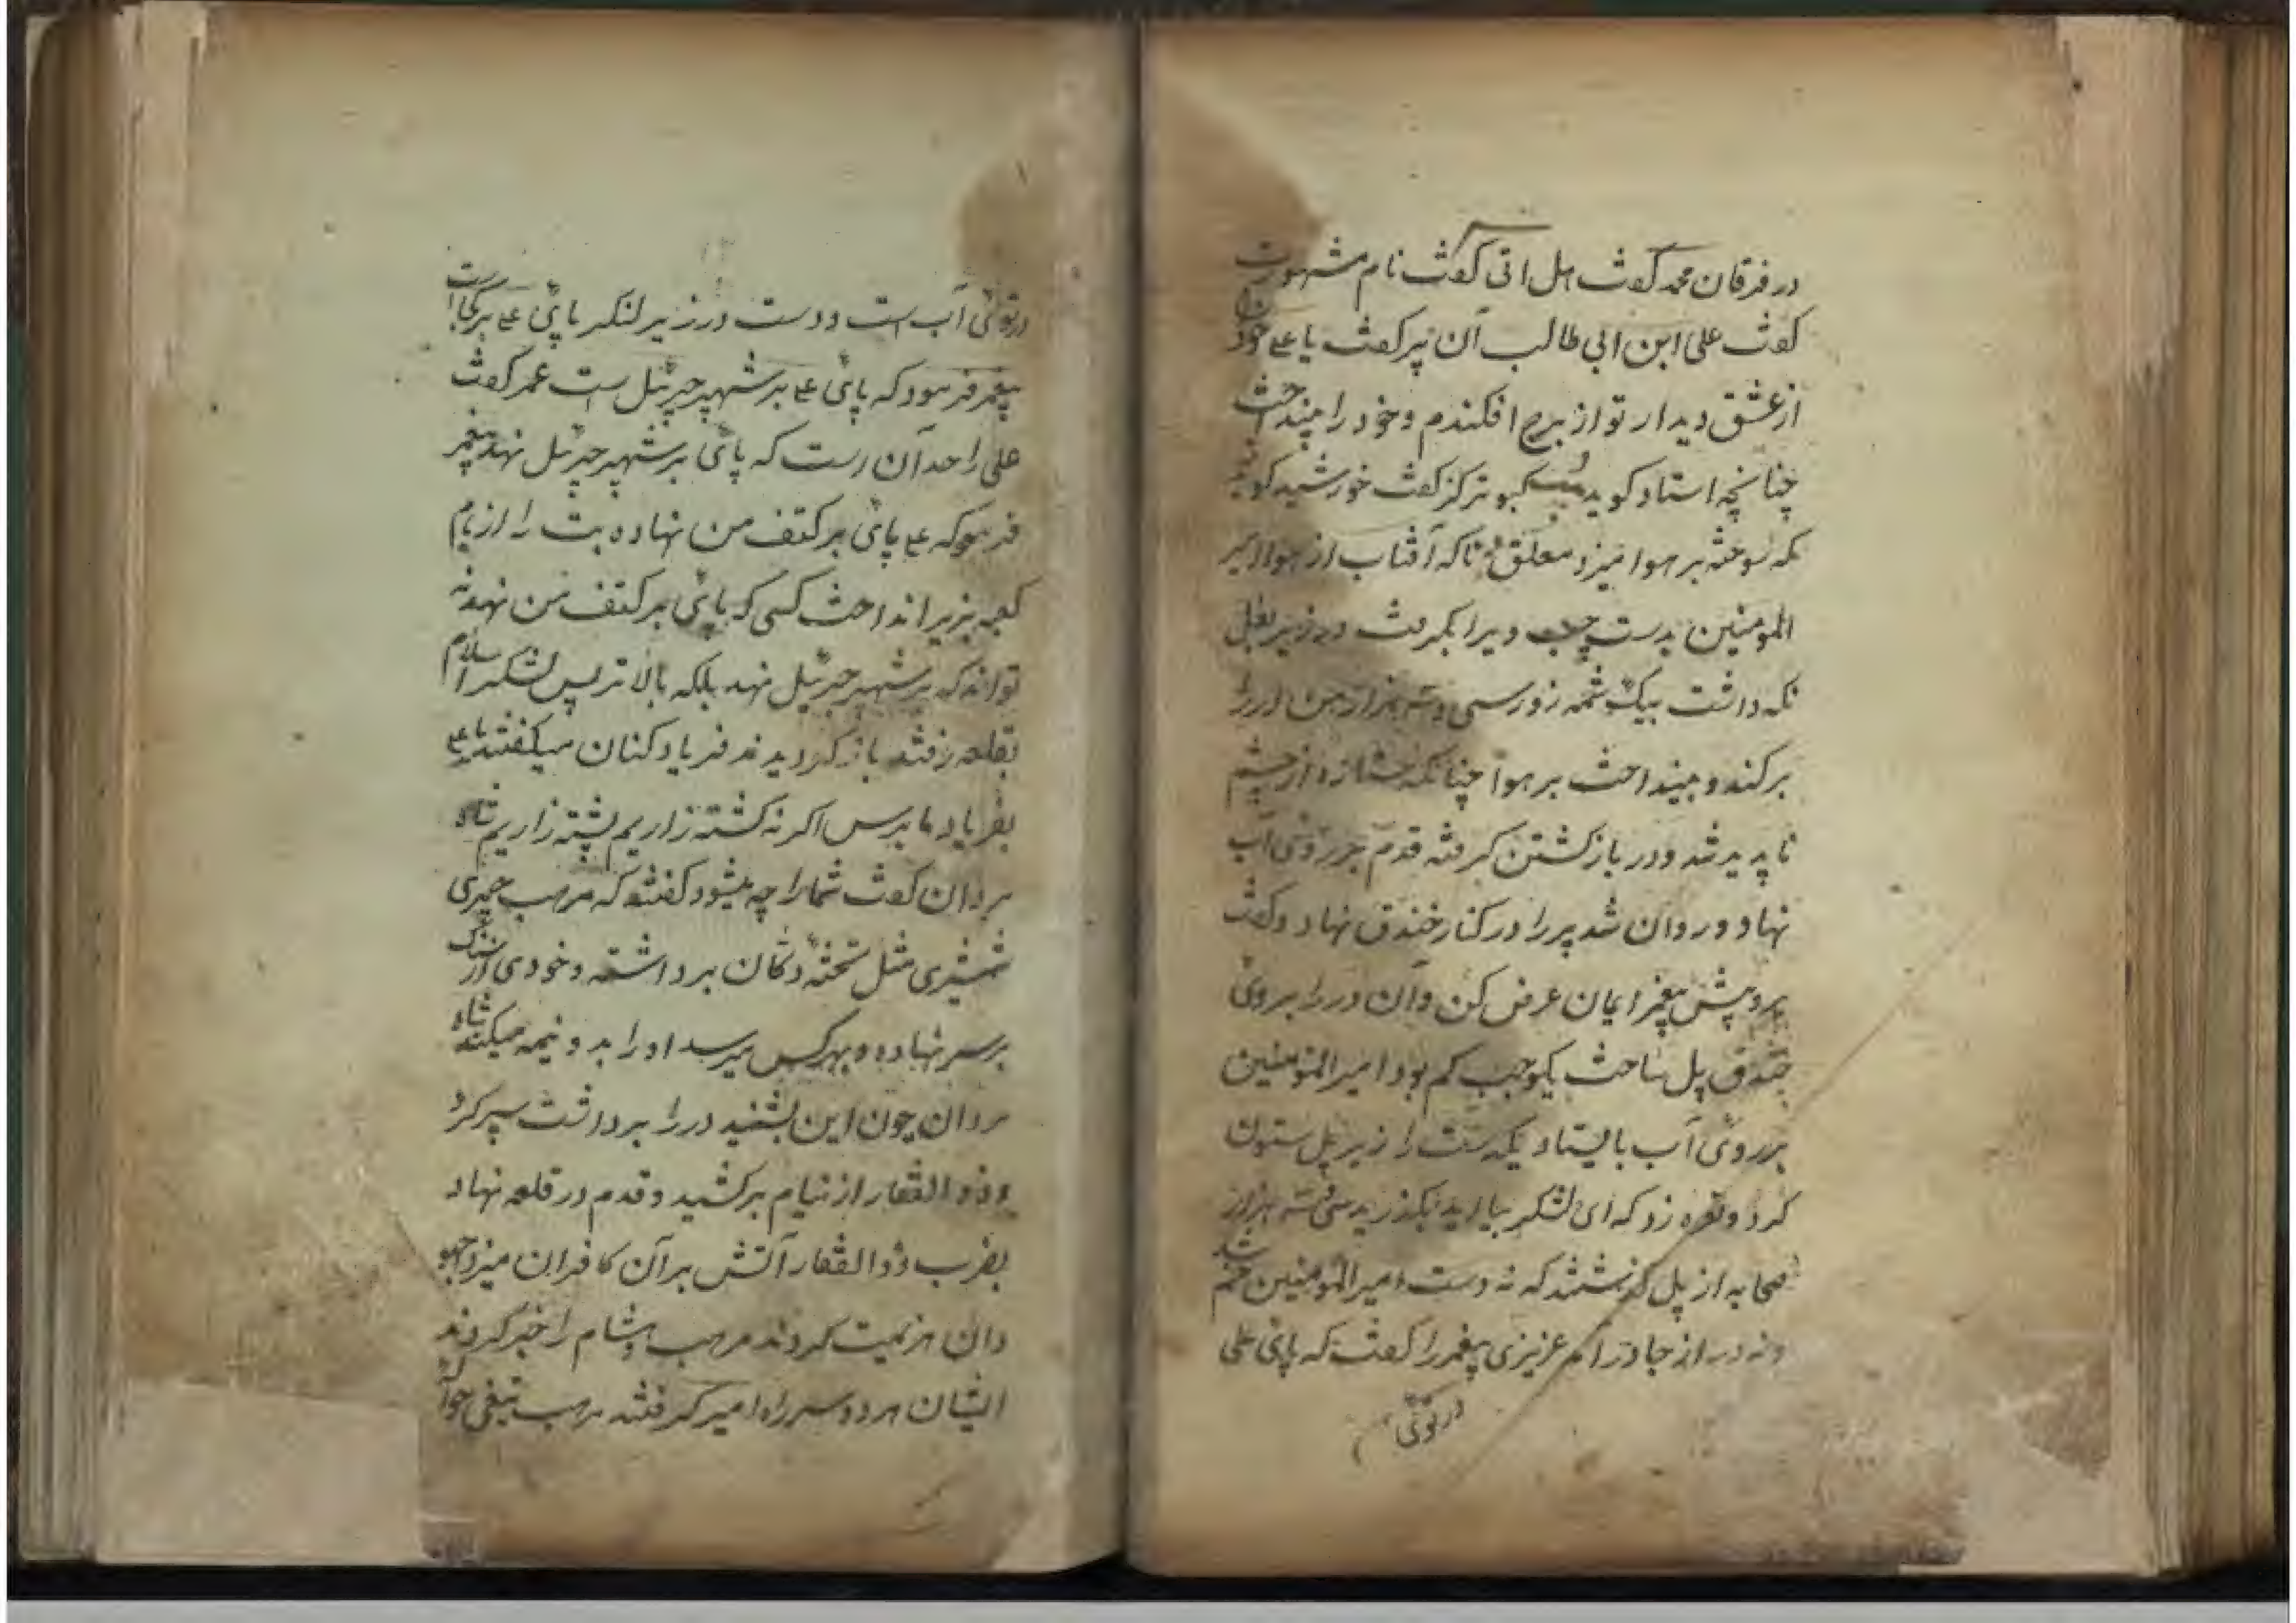 در فرقان محمد گفت هل اتی گفت نام مشهورت
گفت علی ابن ابی طالب آن پیر گفت یا علی خود را
از عشق دیدار تو از برج افکندم و خود را بینداخت
چنانچه استاد کوید کبوتر کز کفت خورشید
که سوخته بر هوا میزد معلق تا که آفتاب از هوا امیر
المومنین بدست چپ ویرا بگرفت و در زیر بغل
نکه داشت بیک شمه زور سی و سه هزار من در را
برکند و بینداخت بر هوا چنانکه از چشم
ناپدید شد و در باز کشتن کرفته قدم بر روی آب
نهاد و روان شد پیر را در کنار خندق نهاد و گفت
برو پیش پیغمبر ایمان عرض کن و آن در را بروی
خندق پل ساخت یکوجب کم بود امیر المومنین
بر روی آب بایستاد یکدست را زیر پل ستون
کرد و نعره زد که ای لشکر بیائید بگذرید سی و سه هزار
صحابه از پل گذشتند که نه دست امیر المومنین خم شد
و نه در از جا در آمد عزیزی پیغمبر را گفت که پای علی
در توئی
در توئی آب است و دست در زیر لنکر پای علی بر کجا است
پیغمبر فرمود که پای علی بر شهپر جبرئیل است عمر گفت
علی را حد آن است که پای بر شهپر جبرئیل نهد پیغمبر
فرمو که علی پای بر کتف من نهاده بت را از بام
کعبه بزیر انداخت کسی که پای بر کتف من نهد نه
تواند که بر شهپر جبرئیل نهد بلکه بالاتر پس لشکر اسلام
بقلعه رفتند باز کردیدند فریاد کنان میگفتند یا علی
بفریاد ما برس اگر نه کشته زاریم پشته زاریم شاه
مردان گفت شما را چه میشود گفتند که مرهب حمیری
شمشیری مثل تخته دکان برداشته و خودی از سنک
بر سر نهاده و بهر کس میرسد او را بدو نیمه میکند شاه
مردان چون این بشنید در را برداشت سپر کرد
و ذو الفقار از نیام برکشید و قدم در قلعه نهاد
بضرب ذو الفقار آتش بر آن کافران میزد جهو
دان هزیمت کردند مرهب و هشام را خبر کردند
ایشان هر دو سر راه امیر کرفتند مرهب تیغی حوا